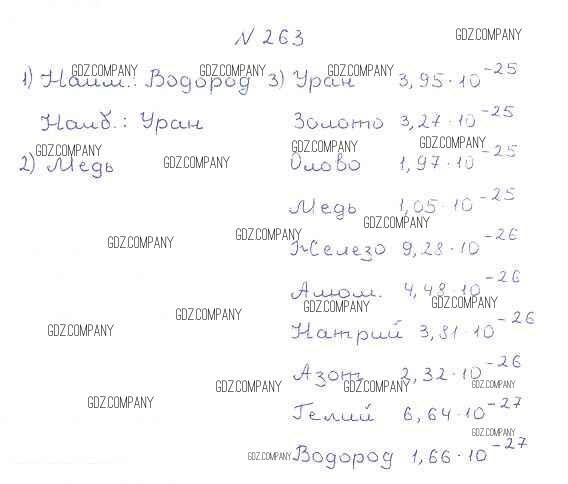 N 263
GDZ.COMPANY
GDZ.COMPANY GDZ.COMPANY GDZ.COMPANY
1) Наим.: Водород 3) Уран 3,95·10^-25
Наиб.: Уран Золото 3,27·10^-25
GDZ.COMPANY GDZ.COMPANY GDZ.COMPANY
2) Медь GDZ.COMPANY Олово 1,97·10^-25
Медь 1,05·10^-25
GDZ.COMPANY
GDZ.COMPANY GDZ.COMPANY
Железо 9,28·10^-26
Алюм. 4,48·10^-26
GDZ.COMPANY GDZ.COMPANY GDZ.COMPANY
GDZ.COMPANY Натрий 3,81·10^-26
Азот 2,32·10^-26
GDZ.COMPANY GDZ.COMPANY GDZ.COMPANY
GDZ.COMPANY Гелий 6,64·10^-27
GDZ.COMPANY
GDZ.COMPANY Водород 1,66·10^-27